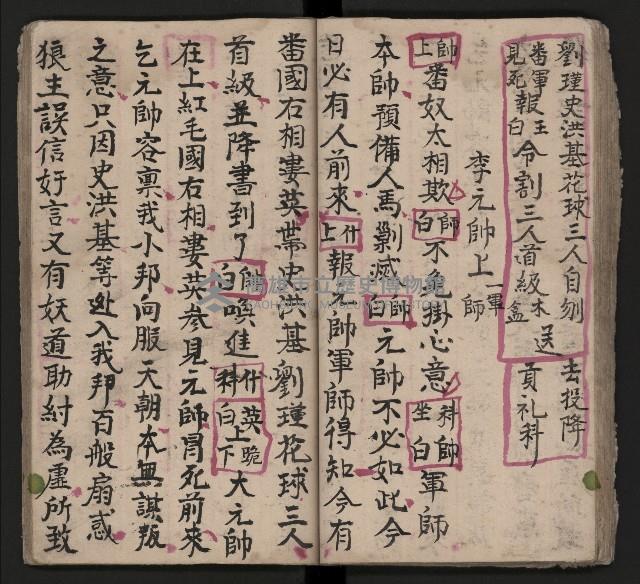 劉瑾史洪基花球三人自刎 去投降
見死 番軍報 王白 令割三人首級 木盒 送 貢礼科
李元帥上 一軍師
上帥 番奴太相欺 白師 不免掛心意 坐科 白帥 軍師
本帥預備人馬剿滅 白師 元帥不必如此今
日必有人前來 上什 報元帥軍師得知今有
番國右相婁英帶史洪基劉瑾花球三人
首級並降書到了 白帥 喚進 科什 白英上跪下 大元帥
在上紅毛國右相婁英叅見元帥冒死前來
乞元帥容禀我小邦向服天朝本無謀叛
之意只因史洪基等 入我邦百般扇惑
狼主誤信奸言又有妖道助紂為虐所致
高雄市立歷史博物館
KAOHSIUNG MUSEUM OF HISTORY